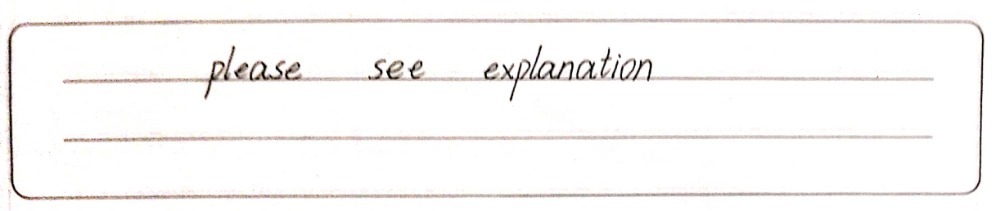 please see explanation